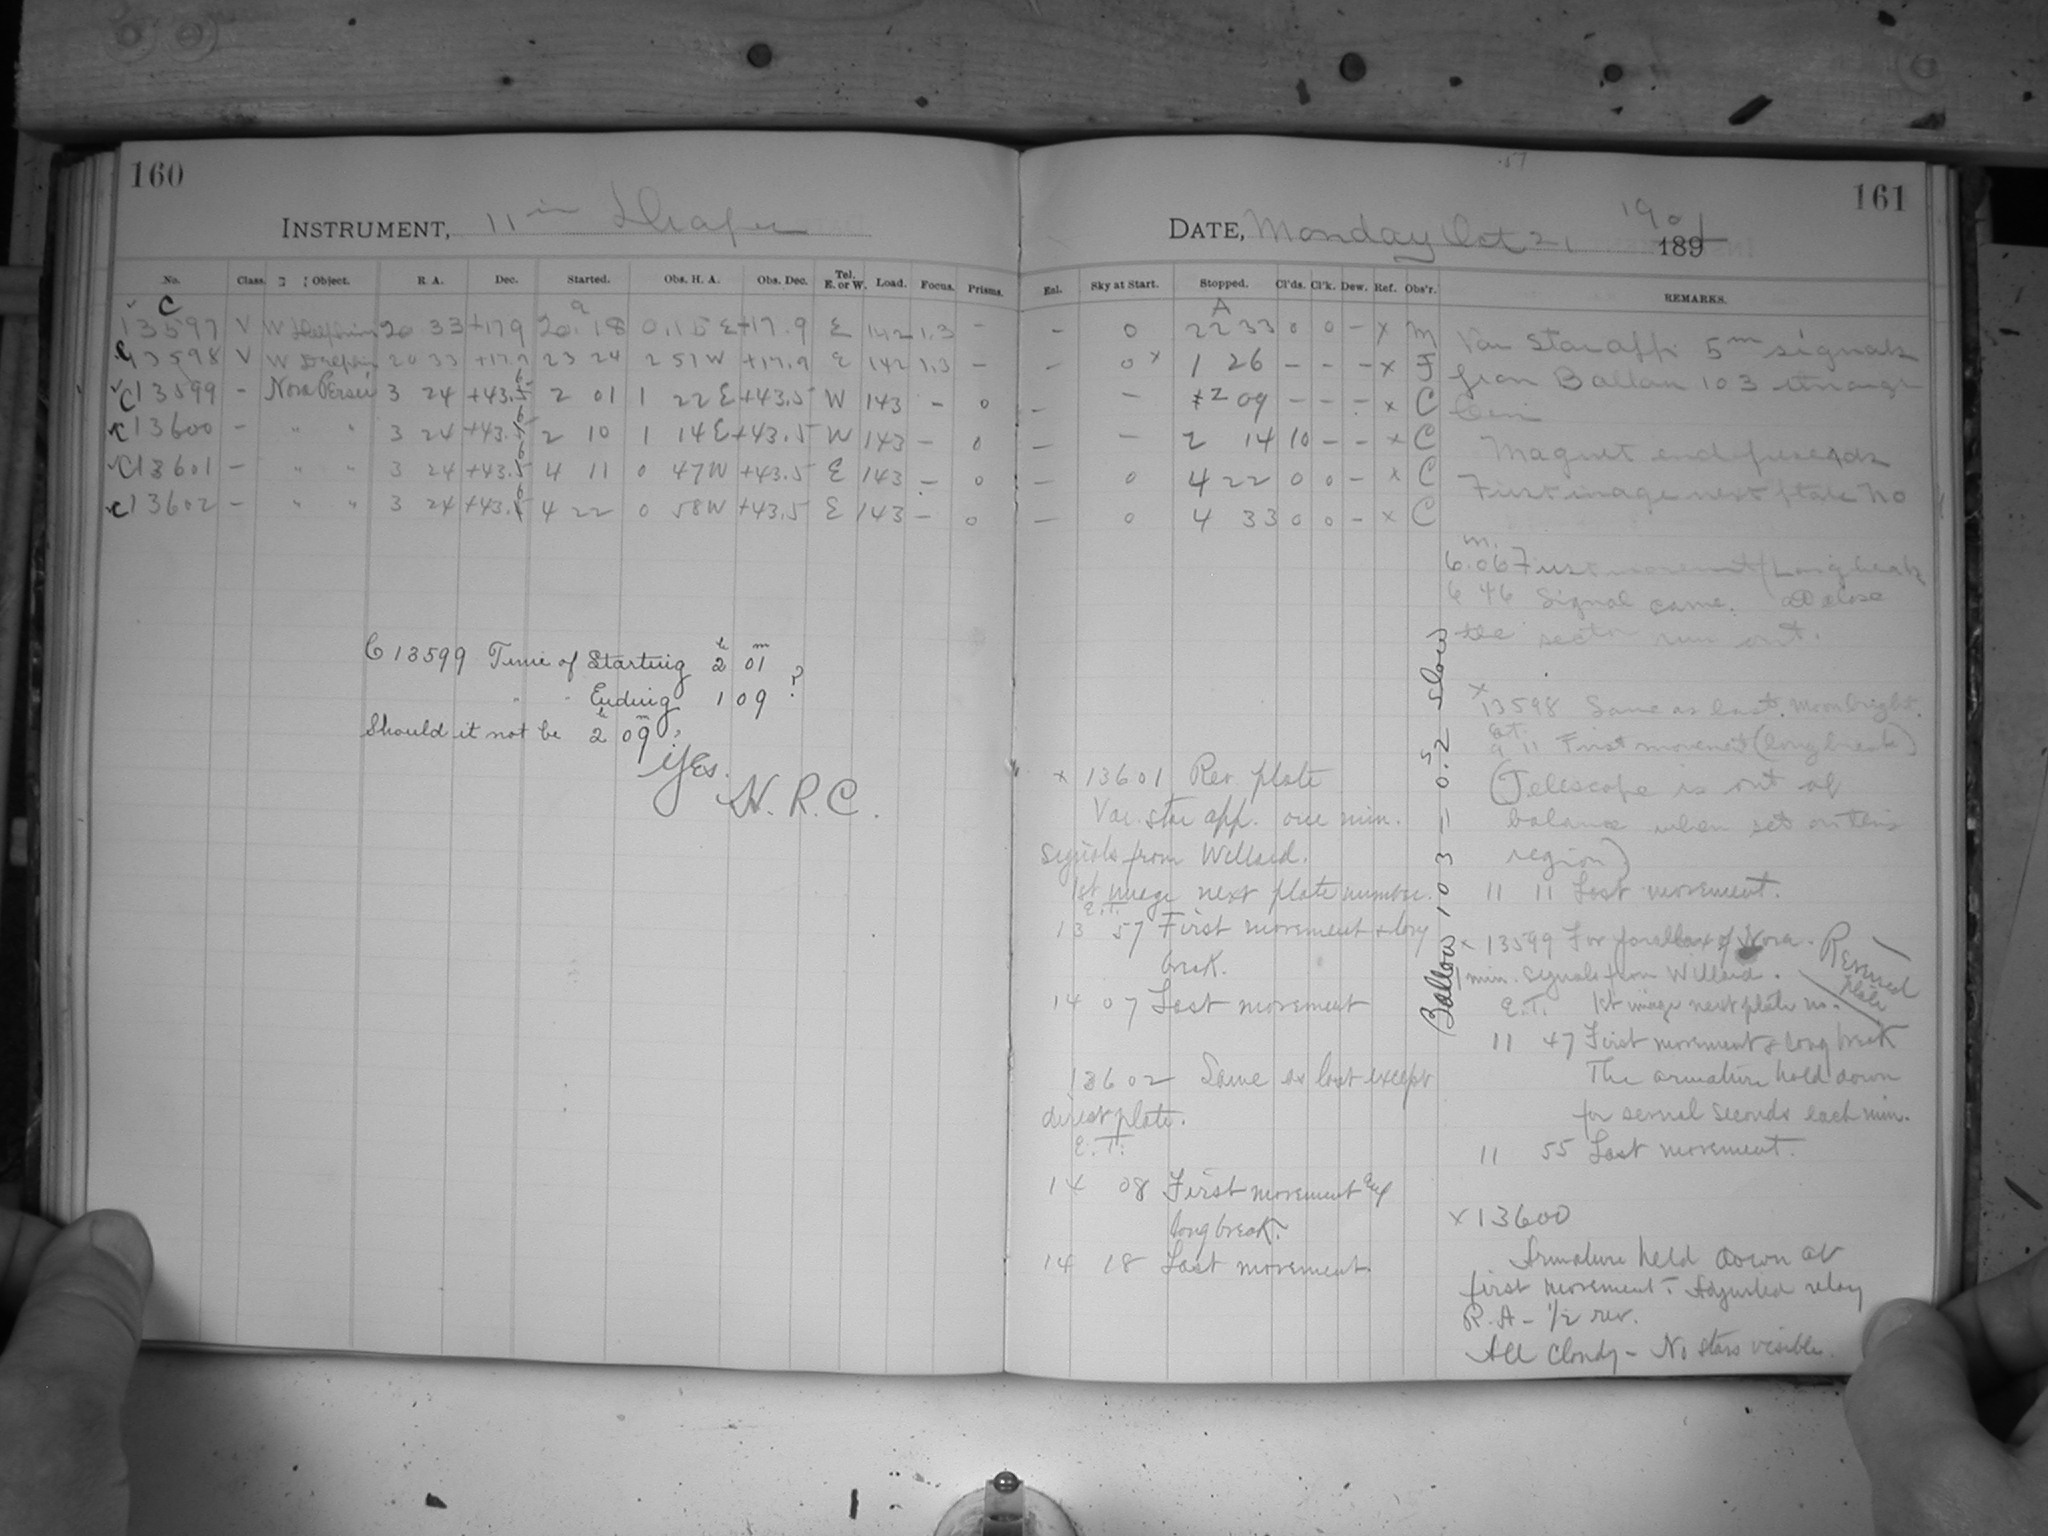 160
INSTRUMENT, 11 in Draper
No. Class. Object. R. A. Dec. Started. Obs. H. A. Obs. Dec. Tel. E. or W. Load. Focus. Prisms.
C 13597 V W Delphini 20 33 +17.9 20 18 0.15 E +17.9 E 142 1.3 –
C 13598 V W Delphini 20 33 +17.9 23 24 2 51 W +17.9 E 142 1.3 –
C 13599 – Nova Persei 3 24 +43.5 2 01 1 22 E +43.5 W 143 – 0
C 13600 – " " 3 24 +43.5 2 10 1 14 E +43.5 W 143 – 0
C 13601 – " " 3 24 +43.5 4 11 0 47 W +43.5 E 143 – 0
C 13602 – " " 3 24 +43.5 4 22 0 58 W +43.5 E 143 – 0
C 13599 Time of Starting 2h 01m
" " Ending 1 09 ?
Should it not be 2h 09m?
Yes.
H. R. C.
161
DATE, Monday Oct 21 1901 189
Enl. Sky at Start. Stopped. Cl'ds. Cl'k. Dew. Ref. Obs'r. REMARKS.
– 0 22 33 0 0 – x M
– 0 x 1 26 – – – x F
– – 2 09 – – – x C
– – 2 14 10 – – x C
– 0 4 22 0 0 – x C
– 0 4 33 0 0 – x C
Var Star app 5m signals
from Ballou 103
Magnet end
First image next plate no
6.06 First movement Long break
6 46 Signal came. close
the run out.
x
13598 Same as last. Moon bright.
9 11 First movement (long break)
(Telescope is out of
balance when set on this
region)
11 11 Last movement.
x 13599 For parallax of Nova. Reversed plate
1 min. signals from Willard.
E.T. 1st image next plate no.
11 47 First movement & long break
The armature held down
for several seconds each min.
11 55 Last movement.
x 13600
Armature held down at
first movement. Adjusted relay
R.A – 1/2 rev.
All Cloudy – No stars visible.
Ballou 103 = 0.s2 slow
x 13601 Rev. plate
Var. star app. one min.
signals from Willard.
1st image next plate number.
E.T.
13 57 First movement & long
break.
14 07 Last movement
13602 Same as last except
direct plate.
E.T.
14 08 First movement and
long break.
14 18 Last movement.